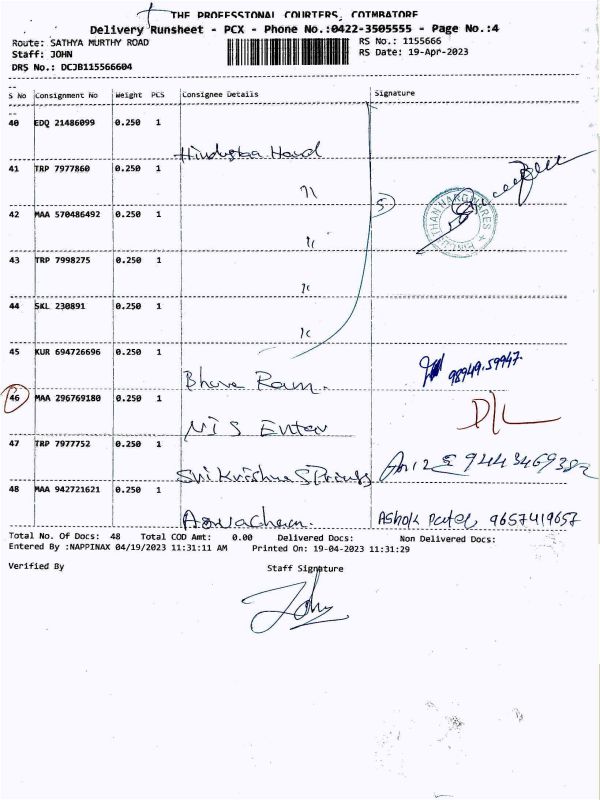 THE PROFESSIONAL COURIERS, COIMBATORE
Delivery Runsheet - PCX - Phone No.:0422-3505555 - Page No.:4
Route: SATHYA MURTHY ROAD
RS No.: 1155666
Staff: JOHN
RS Date: 19-Apr-2023
DRS No.: DCJB115566604
S No Consignment No Weight PCS Consignee Details Signature
40 EDQ 21486099 0.250 1
Hindustan Hard
41 TRP 7977860 0.250 1
42 MAA 570486492 0.250 1
5
43 TRP 7998275 0.250 1
44 SKL 230891 0.250 1
45 KUR 694726696 0.250 1
Bhava Ram. 98949.59947
46 MAA 296769180 0.250 1
MIS Enter D/L
47 TRP 7977752 0.250 1
Sri Krishna Springs 9444346938
48 MAA 942721621 0.250 1
Ashok Patel 9657419657
Total No. Of Docs: 48 Total COD Amt: 0.00 Delivered Docs: Non Delivered Docs:
Entered By :NAPPINAX 04/19/2023 11:31:11 AM Printed On: 19-04-2023 11:31:29
Verified By Staff Signature
John